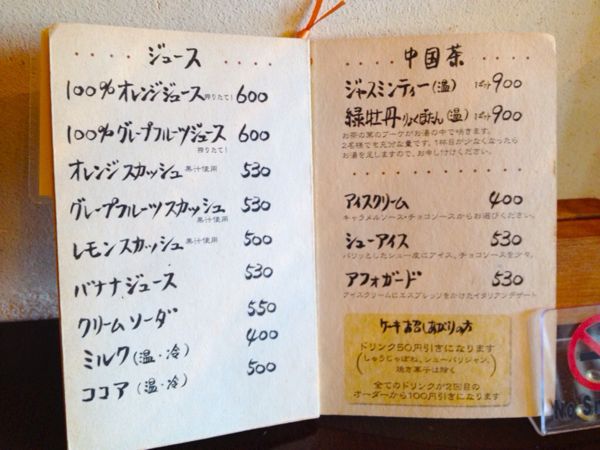 ジュース
100%オレンジジュース 搾りたて! 600
100%グレープフルーツジュース 600
搾りたて!
オレンジスカッシュ 果汁使用 530
グレープフルーツスカッシュ 530
果汁使用
レモンスカッシュ 果汁使用 500
バナナジュース 530
クリームソーダ 550
ミルク(温・冷) 400
ココア(温・冷) 500
中国茶
ジャスミンティー(温) 1ポット900
緑牡丹りょくぼたん(温) 1ポット900
お茶の葉のブーケがお湯の中で咲きます。
2名様でも充分な量です。1杯目が少なくなったら
お湯を足しますので、お申し付けください。
アイスクリーム 400
キャラメルソース・チョコソースからお選びください。
シューアイス 530
パリッとしたシュー皮にアイス、チョコソースを少々。
アフォガード 530
アイスクリームにエスプレッソをかけたイタリアンデザート
ケーキお召しあがりの方
ドリンク50円引きになります
(しゅうじゃぽね、シューパリジャン、
焼き菓子は除く)
全てのドリンクが2回目の
オーダーから100円引きになります